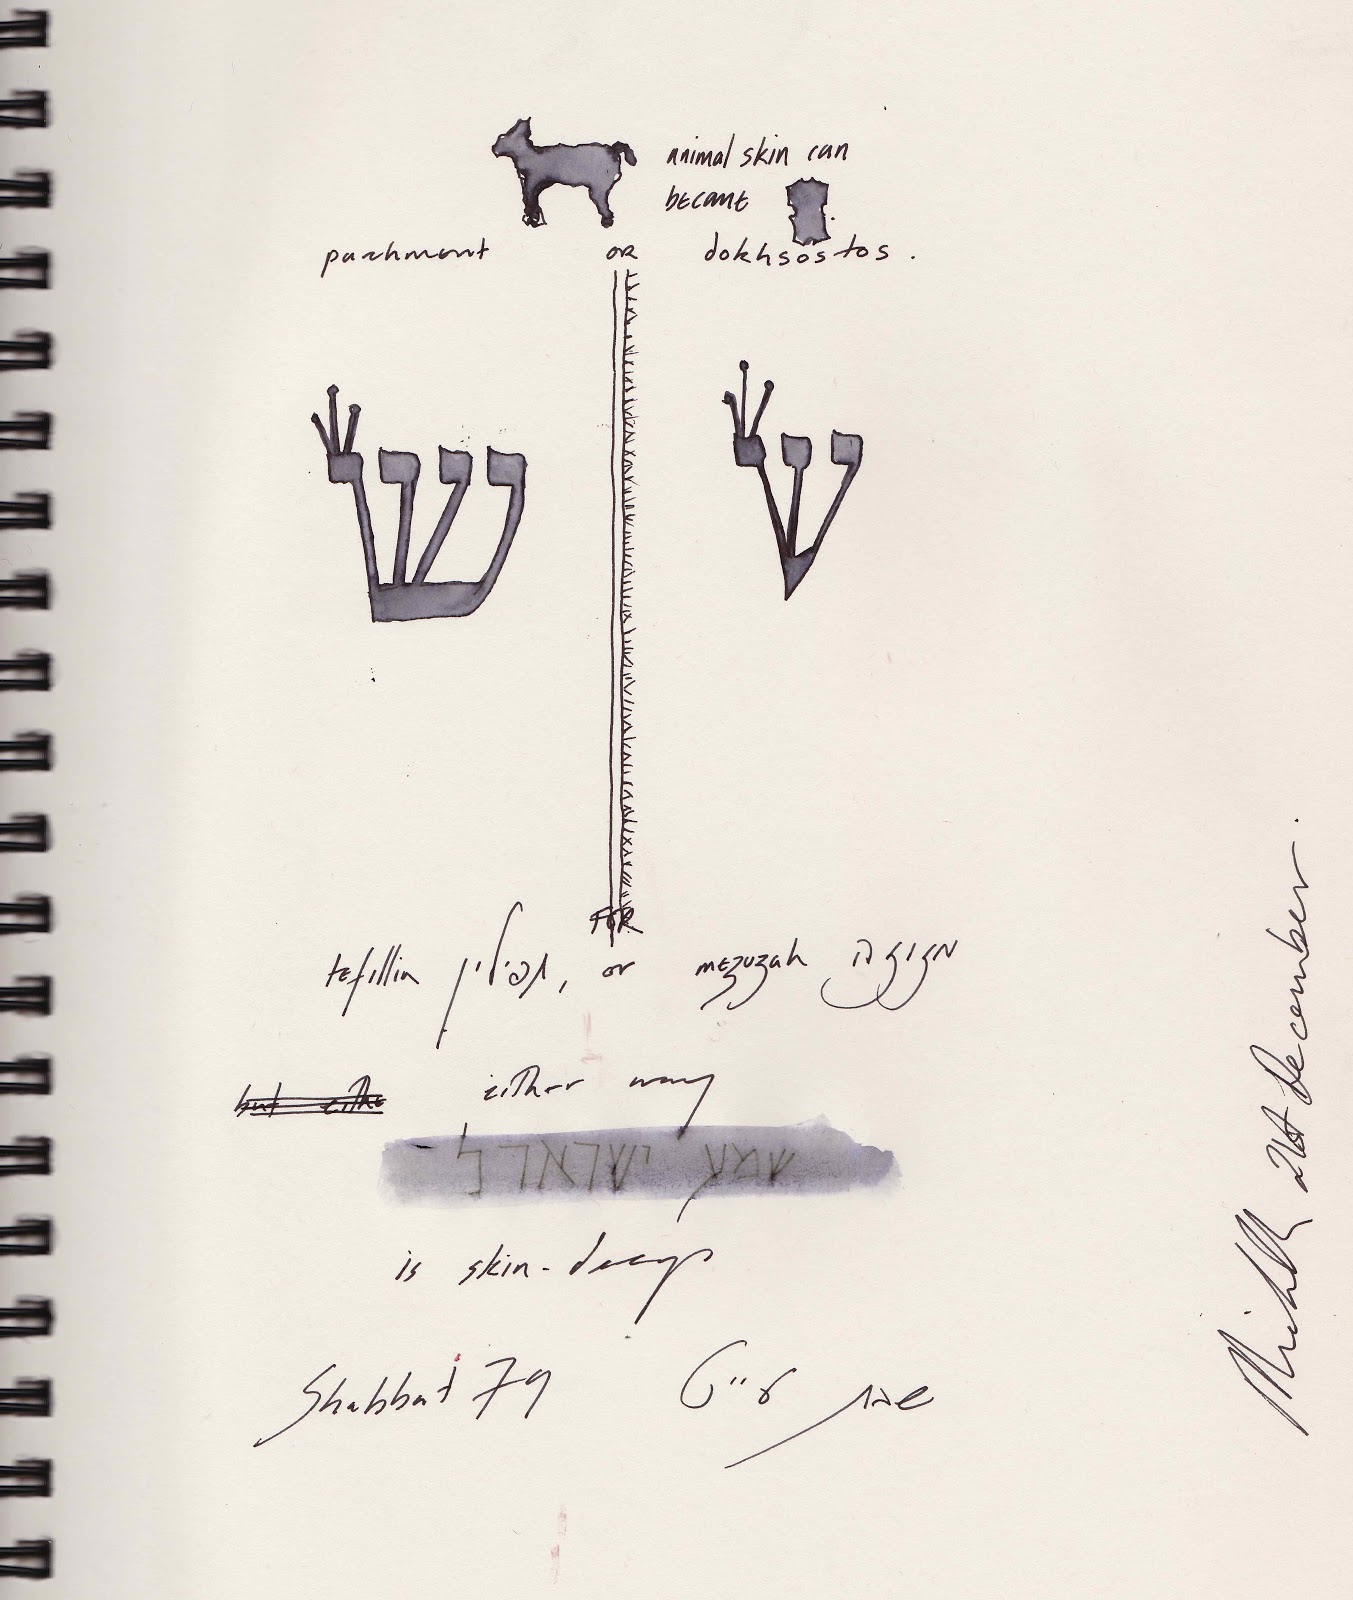 animal skin can
become
parchment OR dokhsostos .
ש ש
FOR
tefillin תפילין, or mezuzah מזוזה
but eithe either way
שמע ישראל
is skin-deep
Shabbat 79 שבת ע״ט
21st December.